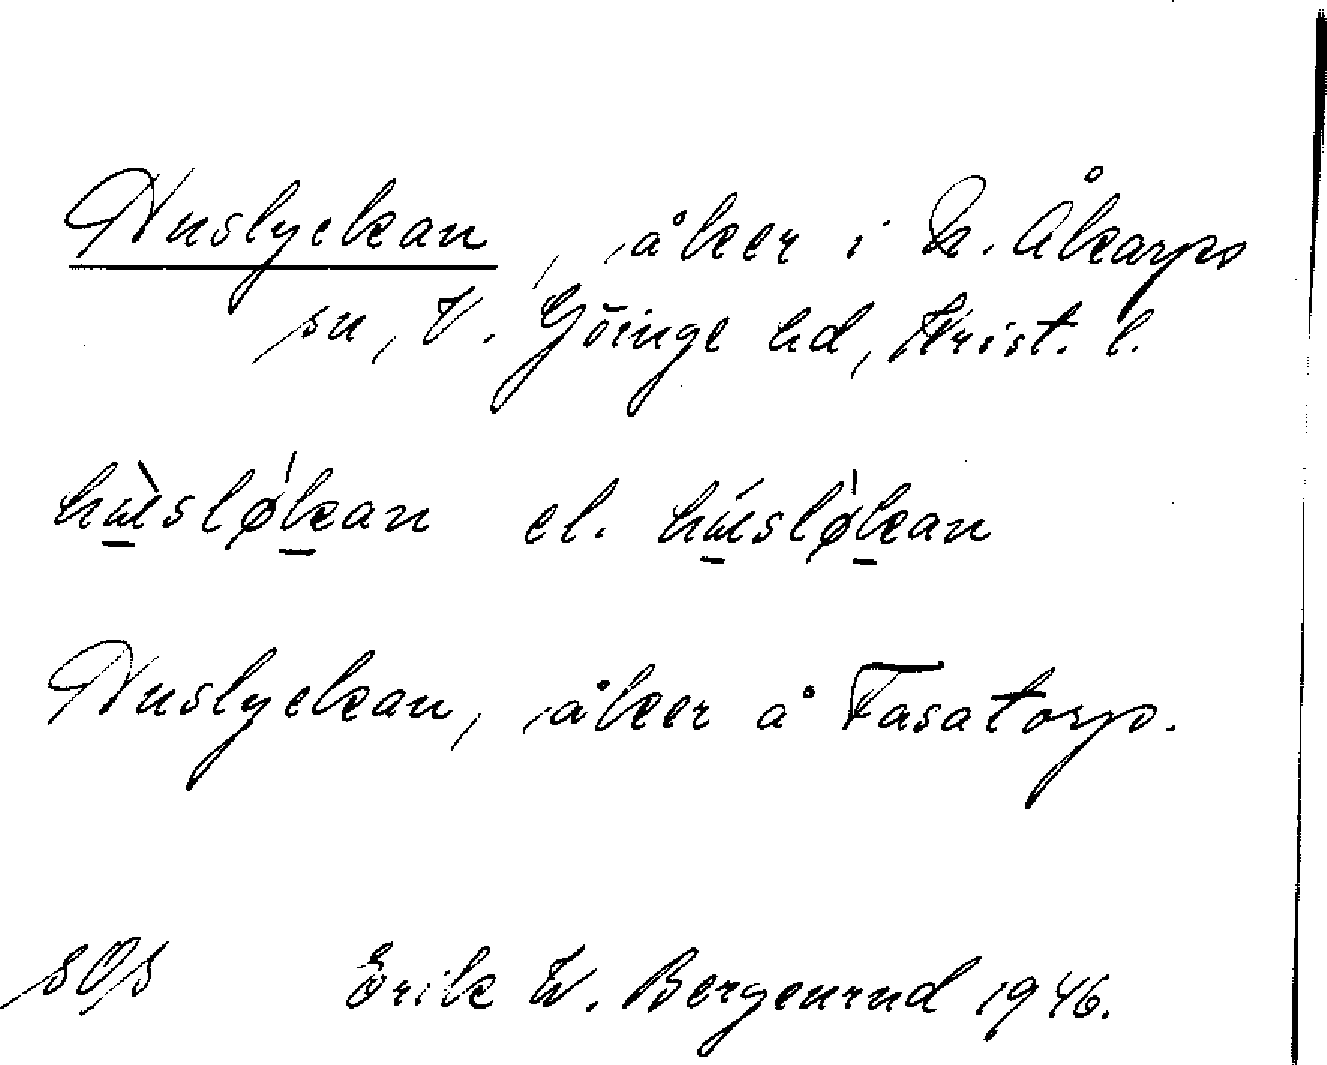 Huslyckan, åker i N. Åkarps
sn, V. Göinge hd, Krist. l.
hùsløkan el. húsløkan
Huslyckan, åker å Fasatorp.
sOs Erik W. Bergenrud 1946.